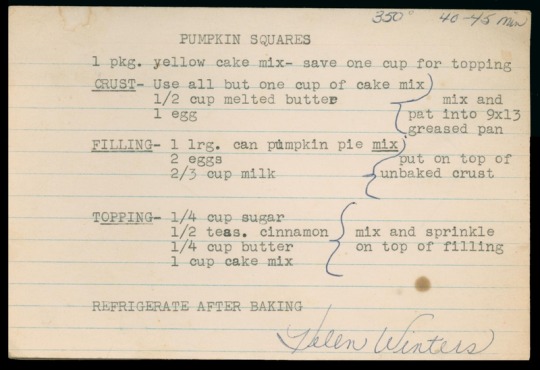 350° 40-45 Min
PUMPKIN SQUARES
1 pkg. yellow cake mix- save one cup for topping
CRUST- Use all but one cup of cake mix
1/2 cup melted butter mix and
1 egg pat into 9x13
greased pan
FILLING- 1 lrg. can pumpkin pie mix
2 eggs put on top of
2/3 cup milk unbaked crust
TOPPING- 1/4 cup sugar
1/2 teas. cinnamon mix and sprinkle
1/4 cup butter on top of filling
1 cup cake mix
REFRIGERATE AFTER BAKING
Helen Winters